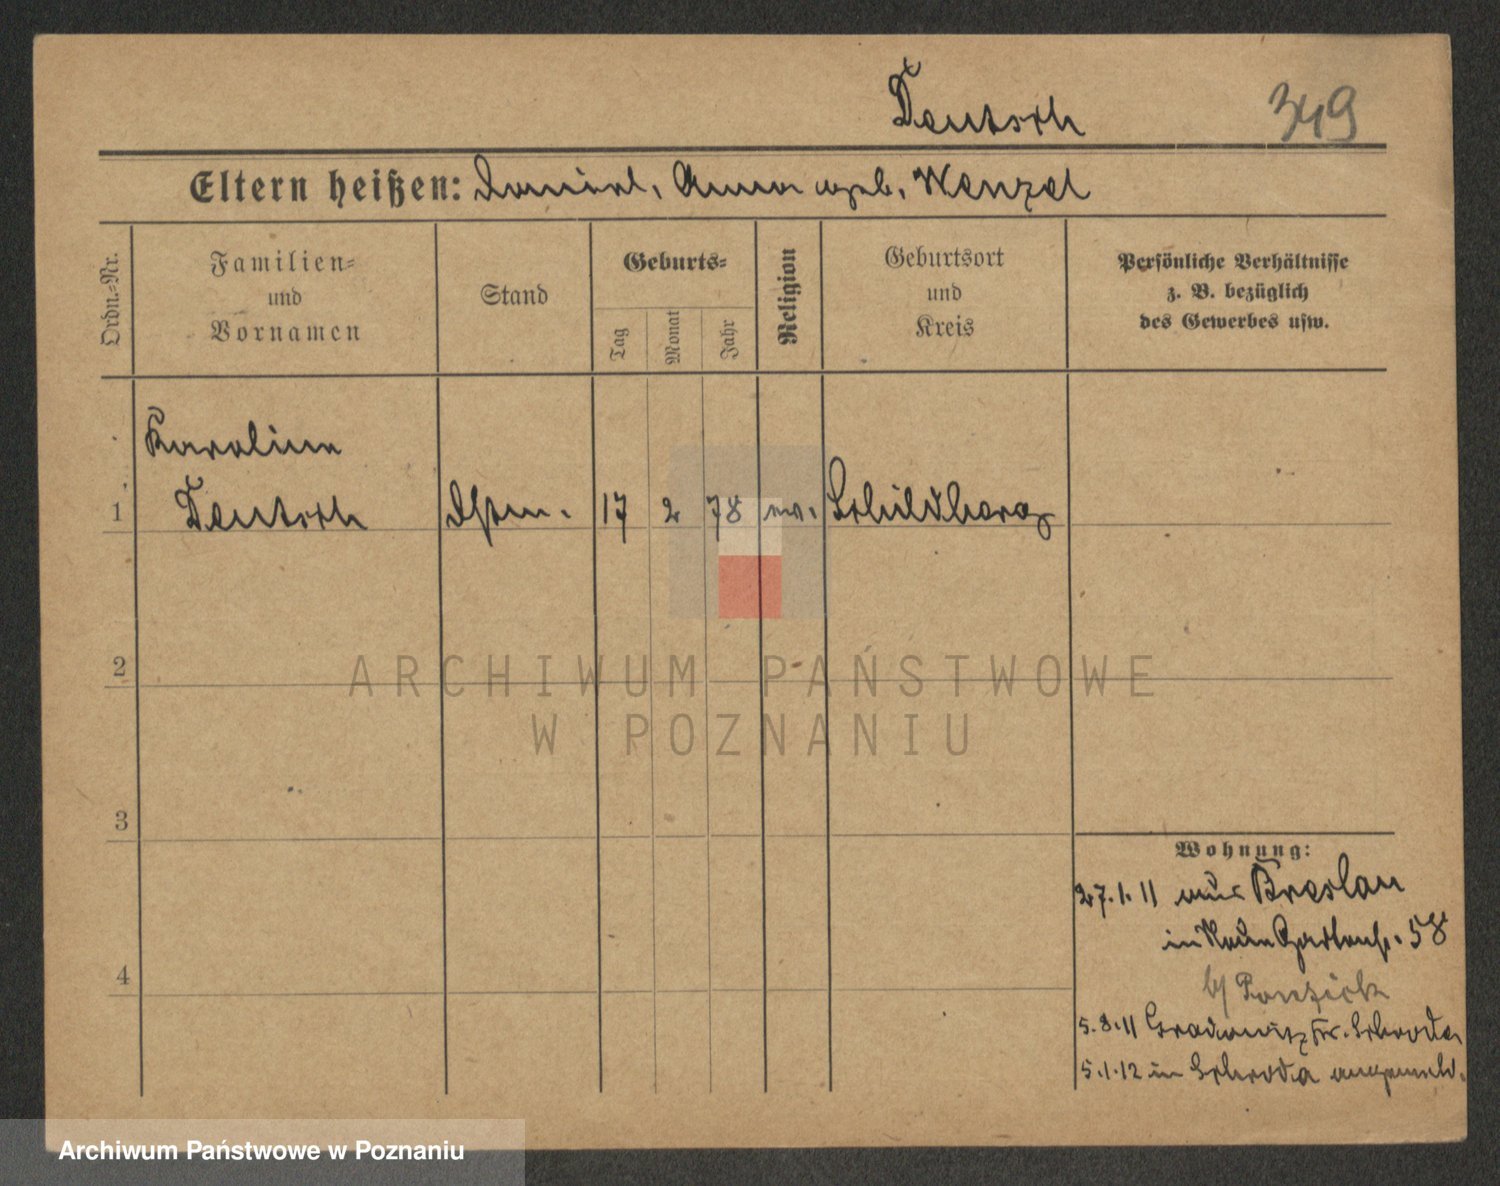 Deutsch 349
Eltern heißen: Daniel, Anna geb. Wenzel
Ordn.-Nr.
Familien-
und
Vornamen
Stand
Geburts-
Tag
Monat
Jahr
Religion
Geburtsort
und
Kreis
Persönliche Verhältnisse
z. B. bezüglich
des Gewerbes usw.
Karoline
1 Deutsch 17 2 78 ev. Schildberg
2
ARCHIWUM PAŃSTWOWE
W POZNANIU
3
Wohnung:
27.1.11 aus Breslau
in Neue Gartenstr. 58
b/
4
5.8.11 Kr. Schroda
5.1.12 in Schroda angemeld.
Archiwum Państwowe w Poznaniu